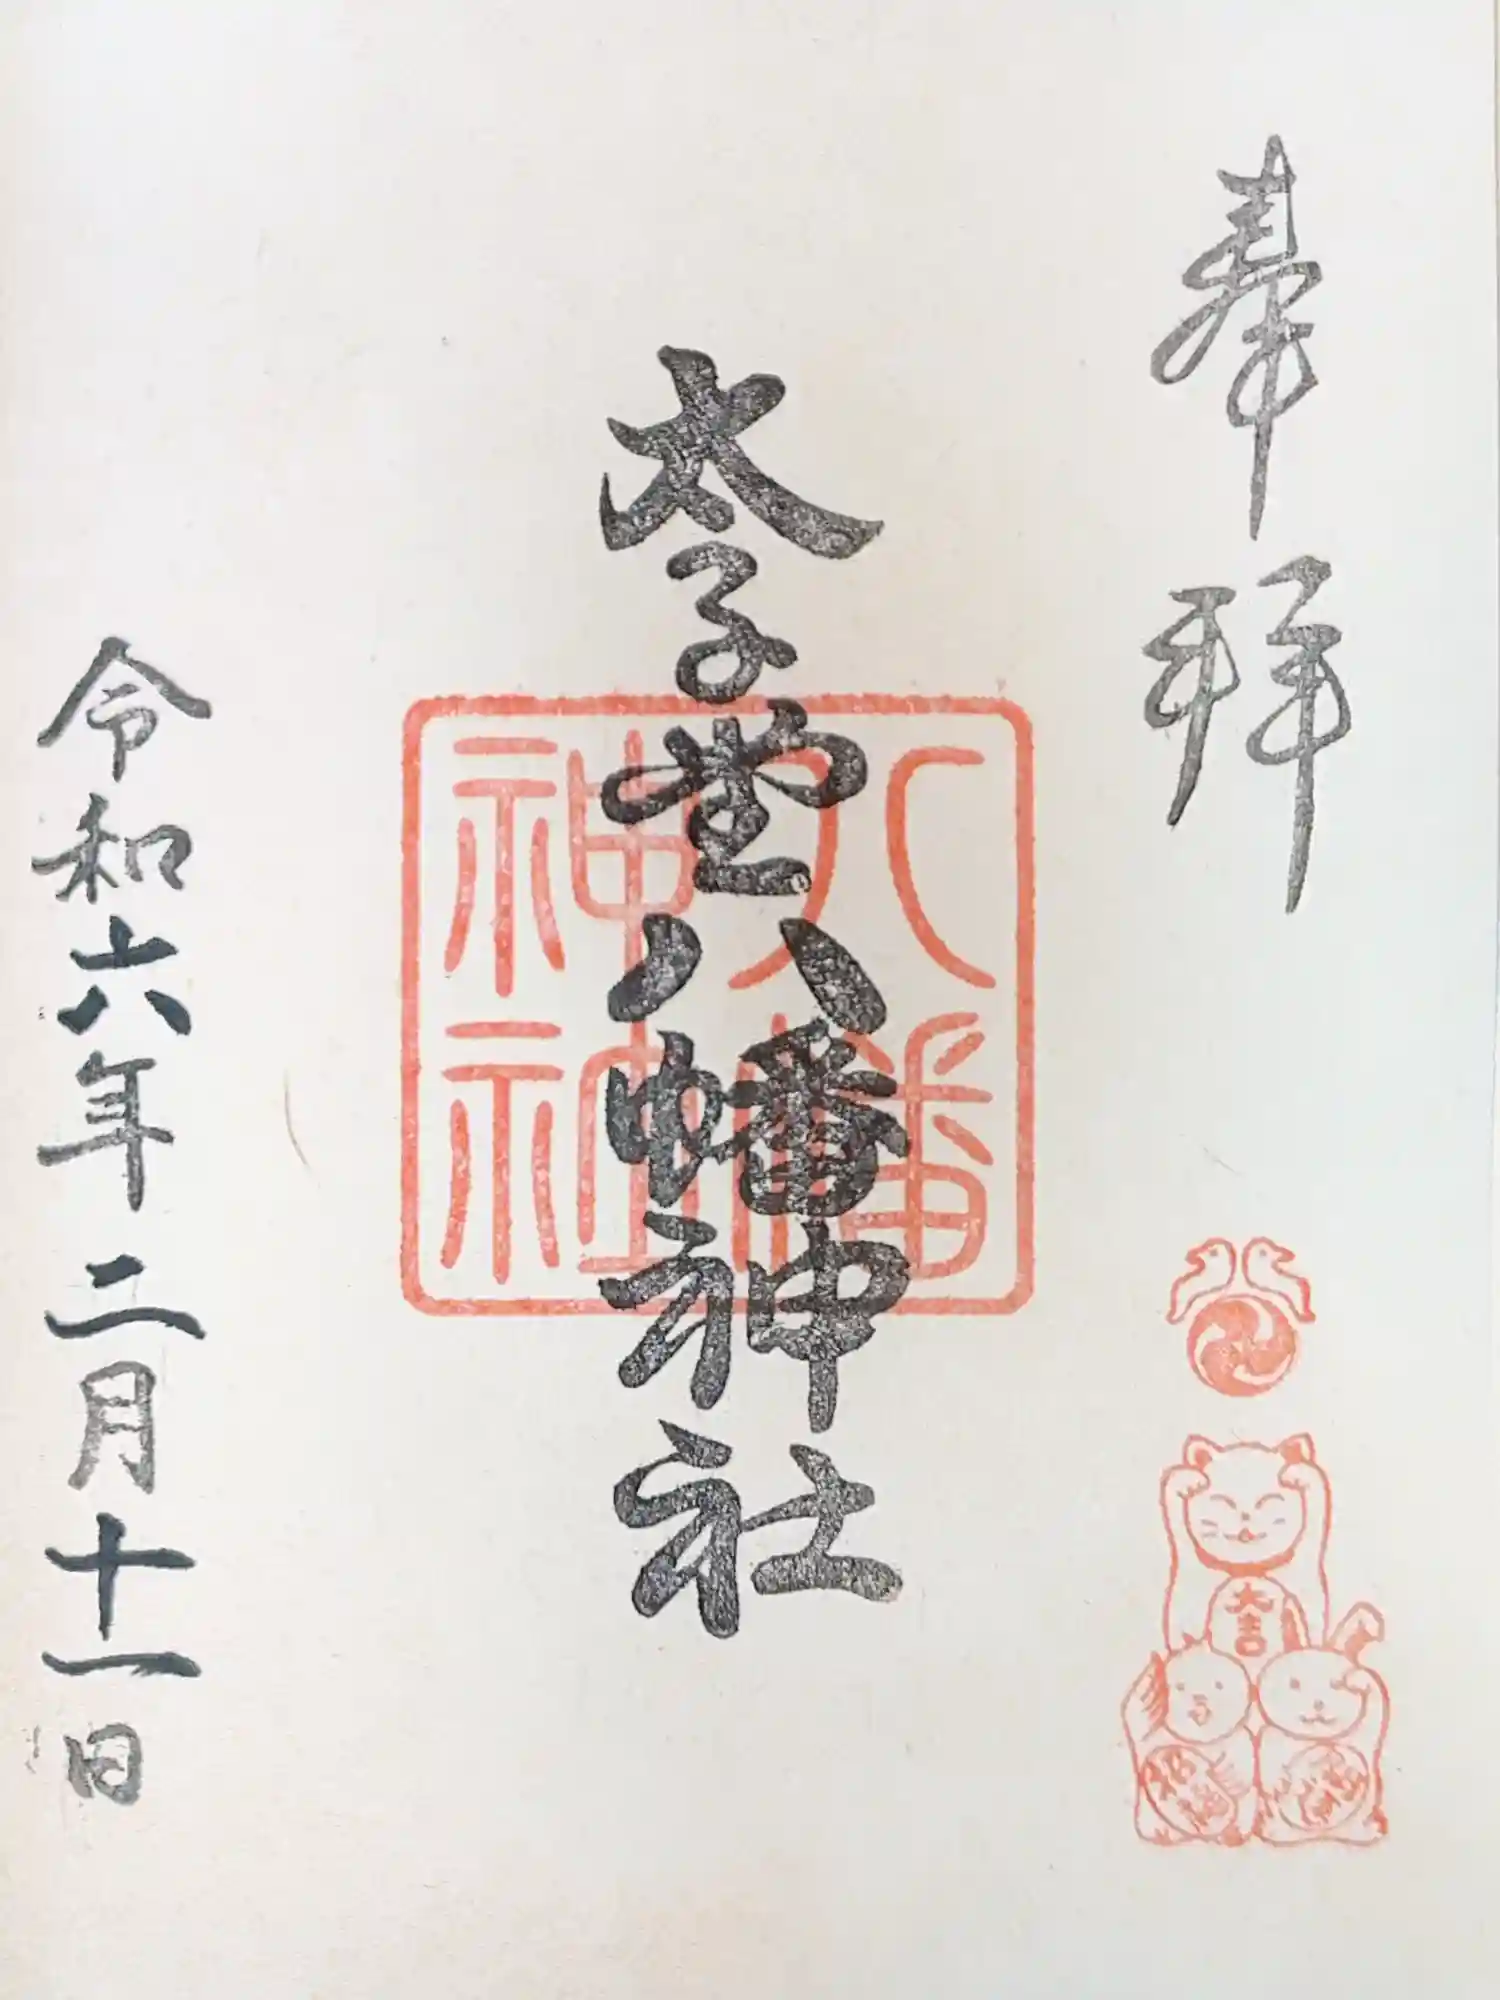 奉拝
太子堂八幡神社
八幡
神社
大吉
令和六年二月十一日